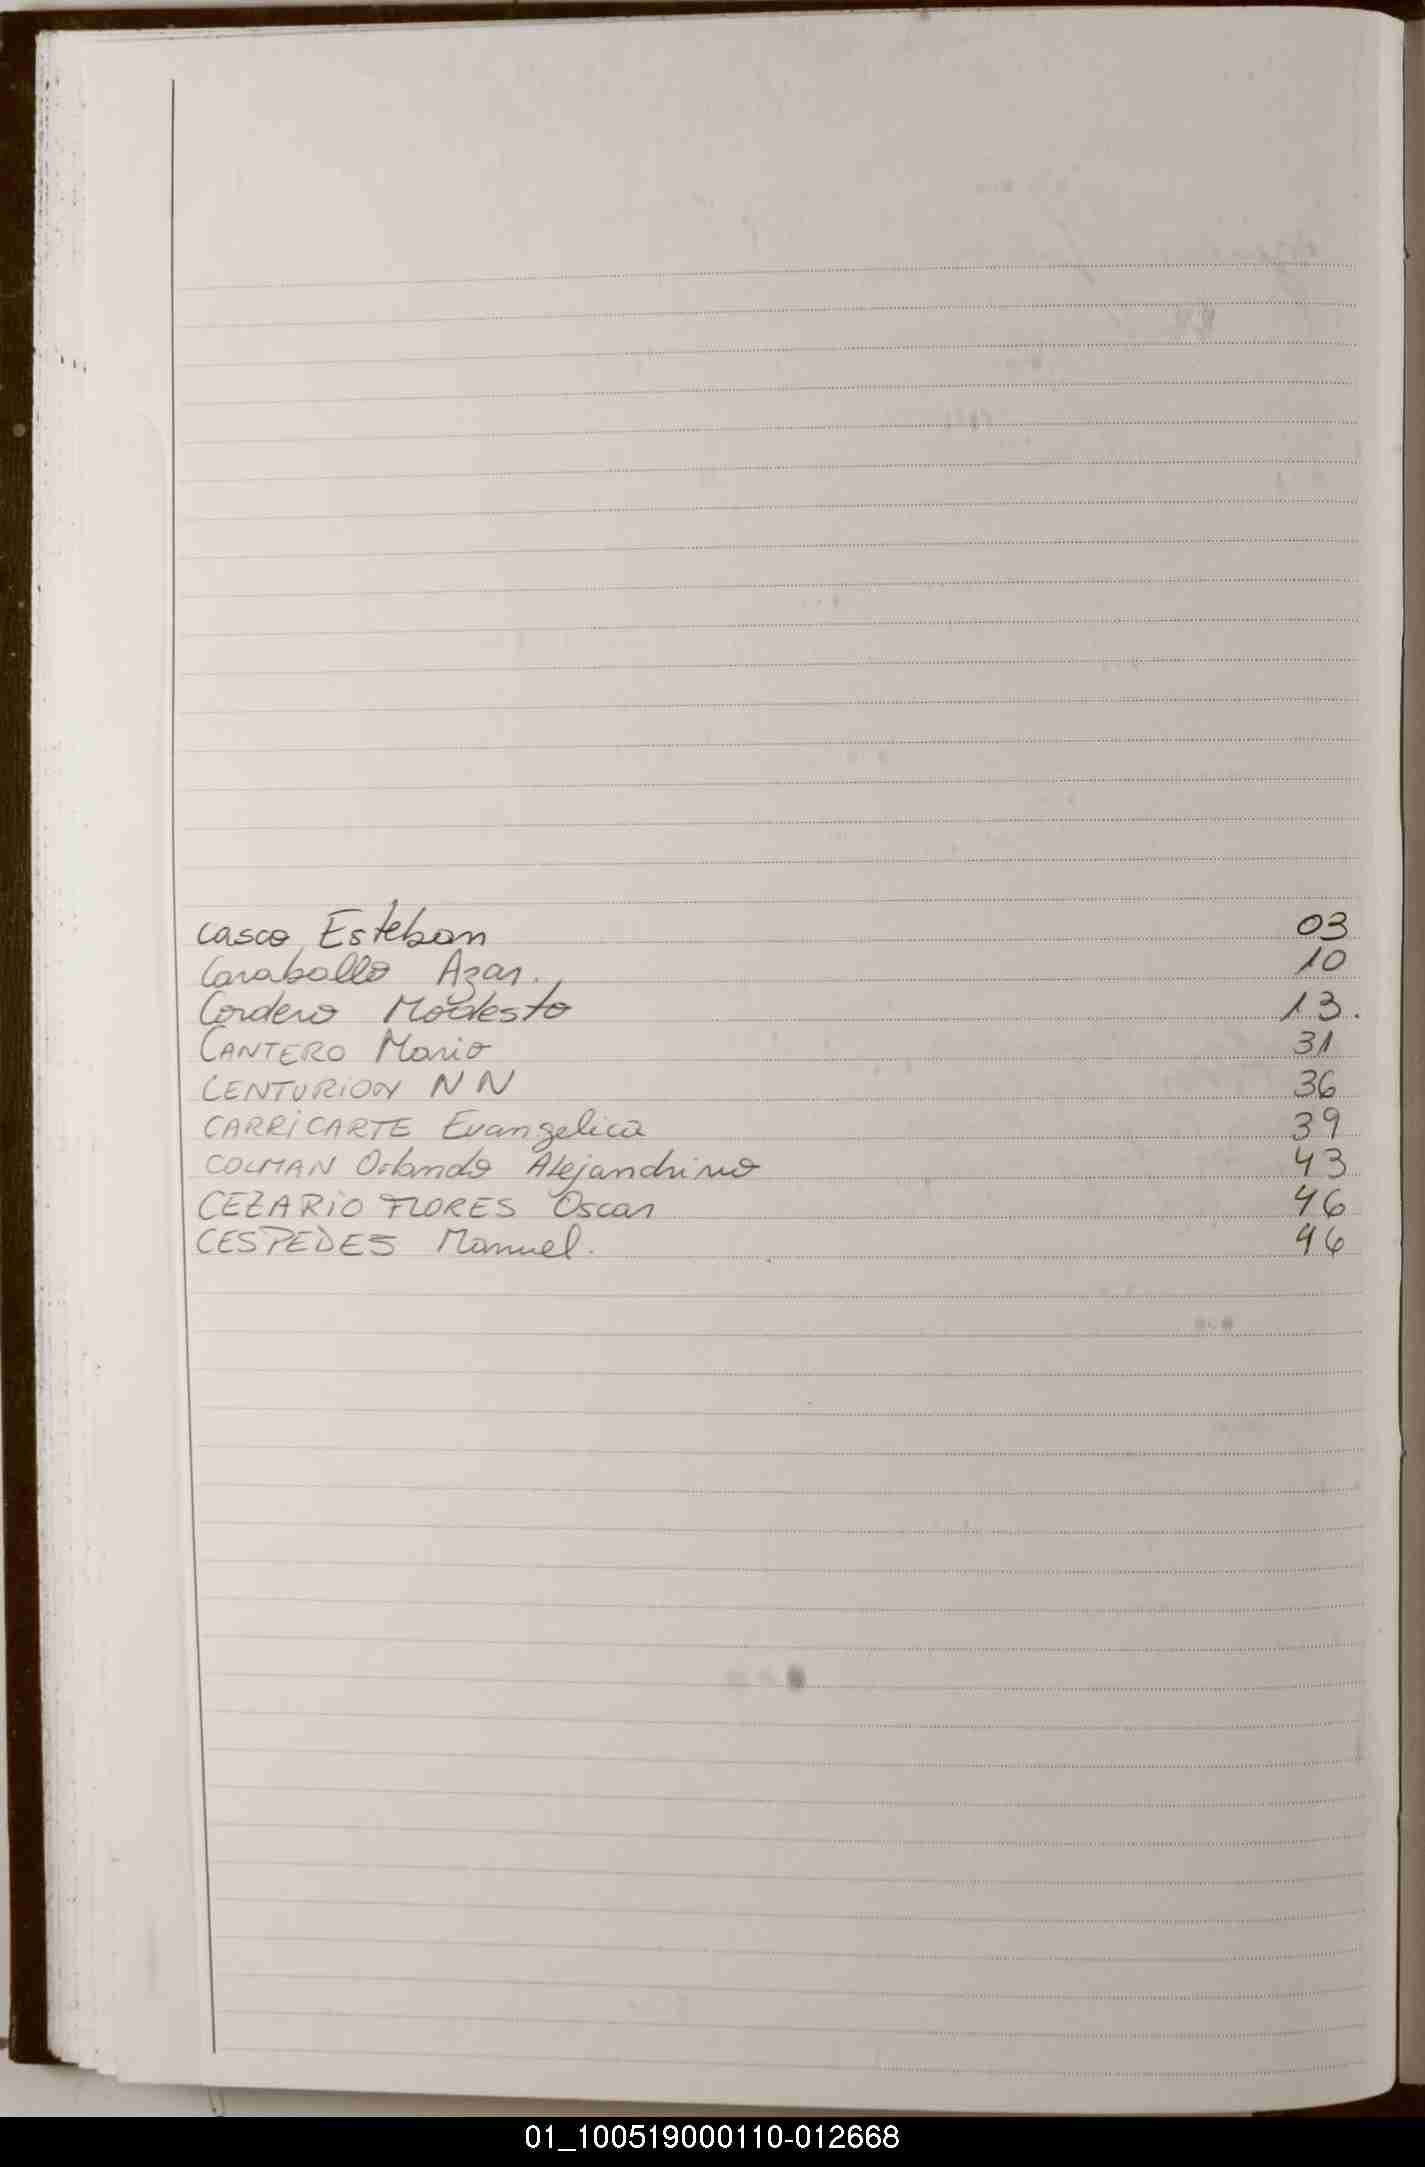 Casco, Esteban 03
Caraballo Azar. 10
Cordero Modesto 13.
CANTERO Mario 31
CENTURION NN 36
CARRICARTE Evangelica 39
COLMAN Orlando Alejandrino 43
CEZARIO FLORES Oscar 46
CESPEDES Manuel. 46
01_100519000110-012668